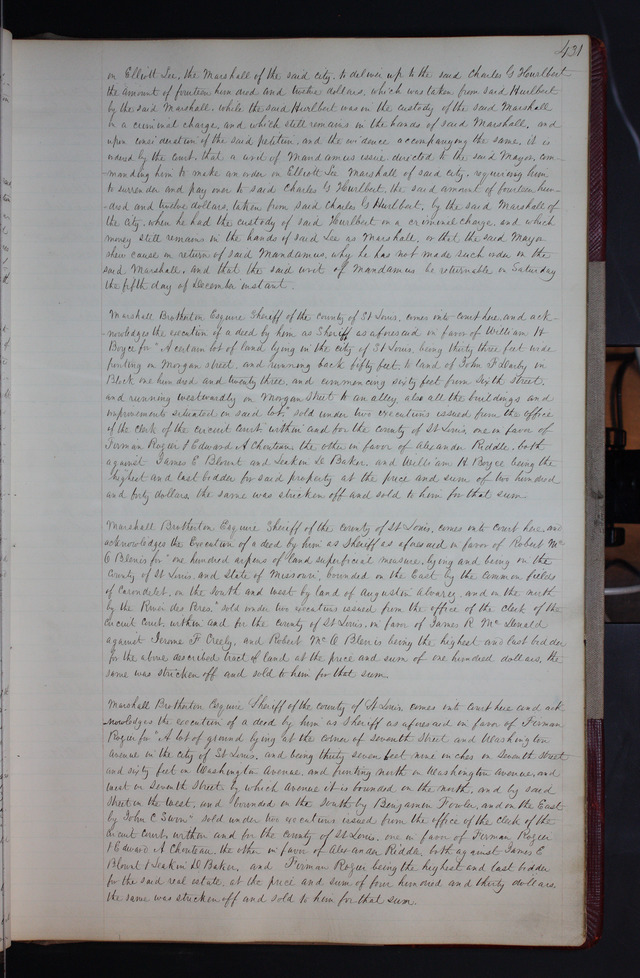 431
on Elliott Lee, the Marshall of the said city, to deliver up to the said Charles G Hurlbert
the amount of fourteen hundred and twelve dollars, which was taken from said Hurlbert
by the said Marshall, while the said Hurlbert was in the custody of the said Marshall
on a criminal charge, and which still remains in the hands of said Marshall, and
upon consideration of the said petition, and the evidence accompanying the same, it is
ordered by the court, that a writ of Mandamus issue directed to the said Mayor, com-
manding him to make an order on Elliott Lee Marshall of said city, requiring him
to surrender and pay over to said Charles G Hurlbert, the said amount of fourteen hun-
dred and twelve dollars, taken from said Charles G Hurlbert, by the said Marshall of
the City, when he had the custody of said Hurlbert on a criminal charge, and which
money still remains in the hands of said Lee as Marshall, or that the said Mayor
shew cause on return of said Mandamus, why he has not made such order on the
said Marshall, and that the said writ of Mandamus be returnable on Saturday
the fifth day of December instant.
Marshall Brotherton Esquire Sheriff of the county of St Louis, comes into court here, and ack-
nowledges the execution of a deed by him as Sheriff as aforesaid in favor of William H
Boyce for "A certain lot of land lying in the city of St Louis, being thirty three feet wide
fronting on Morgan street, and running back fifty feet, to land of John F Darby in
Block one hundred and twenty three, and commencing sixty feet from Sixth Street,
and running westwardly on Morgan Street to an alley, also all the buildings and
improvements situated on said lot," sold under two executions issued from the office
of the clerk of the circuit court within and for the county of St Louis, one in favor of
Firman Rozier & Edward A Chouteau, the other in favor of Alexander Riddle, both
against James E Blount and Leakin D Baker, and William H Boyce being the
highest and last bidder for said property at the price and sum of two hundred
and forty dollars, the same was stricken off and sold to him for that sum
Marshall Brotherton Esquire Sheriff of the county of St Louis, comes into court here, and
acknowledges the Execution of a deed by him as Sheriff as aforesaid in favor of Robert Mc
O Blenis for "one hundred arpens of land superficial measure, lying and being in the
County of St Louis, and State of Missouri, bounded on the East by the common fields
of Carondelet, on the South and west by land of Augustin Alvarez, and on the north
by the River des Peres," sold under two executions issued from the office of the clerk of the
circuit court within and for the county of St Louis, in favor of James R McDonald
against Jerome F Creely, and Robert Mc O Blenis being the highest and last bidder
for the above described tract of land at the price and sum of one hundred dollars, the
same was stricken off and sold to him for that sum.
Marshall Brotherton Esquire Sheriff of the county of St Louis comes into court here and ack
nowledges the execution of a deed by him as Sheriff as aforesaid in favor of Firman
Rozier for "A lot of ground lying at the corner of Seventh Street and Washington
avenue in the city of St Louis, and being thirty seven feet nine inches on Seventh Street
and sixty feet on Washington Avenue, and fronting north on Washington avenue, and
West on Seventh Street, by which avenue it is bounded on the north, and by said
Street on the West, and bounded on the South by Benjamin Fowler, and on the East
by John C Swon" sold under two executions issued from the office of the Clerk of the
Circuit Court, within and for the county of St Louis, one in favor of Firman Rozier
& Edward A Chouteau, the other in favor of Alexander Riddle, both against James E
Blount & Leakin D Baker, and Firman Rozier being the highest and last bidder
for the said real estate, at the price and sum of four hundred and thirty dollars,
the same was stricken off and sold to him for that sum.